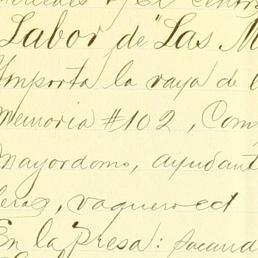 Labor de "Las M
Importa la raya de l
Memoria #102, Com
Mayordomo, ayudant
vaquero
En la Presa: